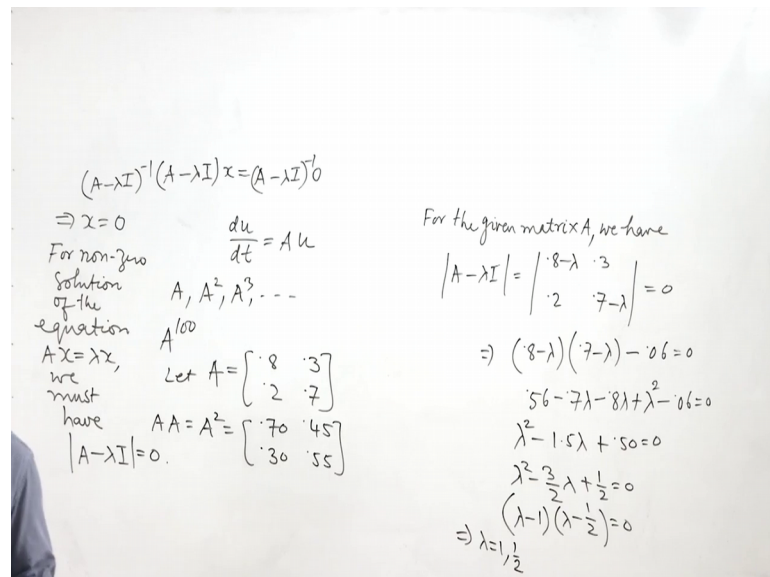 (A-λI)⁻¹(A-λI)x=(A-λI)⁻¹0
⇒ x=0
For non-zero
Solution
of the
equation
AX=λx,
we
must
have
|A-λI|=0.
du/dt = Au
A, A², A³, ---
A¹⁰⁰
Let A = [·8 ·3
·2 ·7]
AA = A² = [·70 ·45
·30 ·55]
For the given matrix A, we have
|A-λI| = |·8-λ ·3
·2 ·7-λ| = 0
⇒ (·8-λ)(·7-λ) - ·06=0
·56-·7λ-·8λ+λ²-·06=0
λ²-1·5λ+·50=0
λ²-3/2λ+1/2=0
(λ-1)(λ-1/2)=0
⇒ λ=1,1/2